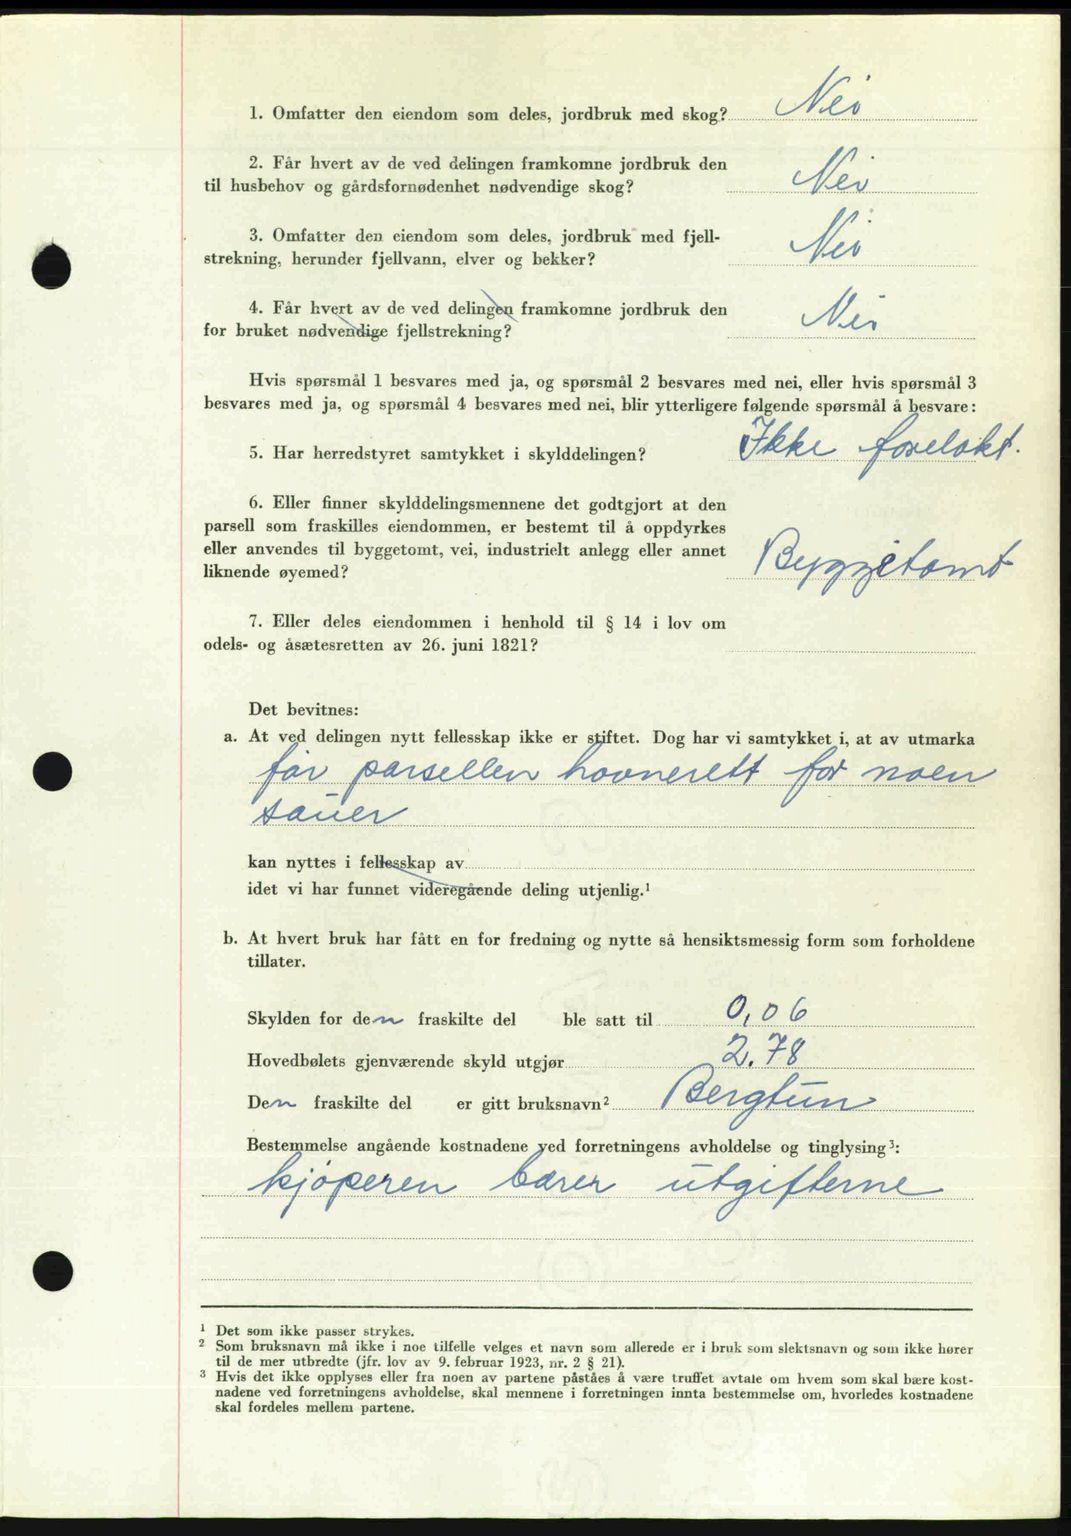 1. Omfatter den eiendom som deles, jordbruk med skog? Nei
2. Får hvert av de ved delingen framkomne jordbruk den
til husbehov og gårdsfornødenhet nødvendige skog? Nei
3. Omfatter den eiendom som deles, jordbruk med fjell-
strekning, herunder fjellvann, elver og bekker? Nei
4. Får hvert av de ved delingen framkomne jordbruk den
for bruket nødvendige fjellstrekning? Nei
Hvis spørsmål 1 besvares med ja, og spørsmål 2 besvares med nei, eller hvis spørsmål 3
besvares med ja, og spørsmål 4 besvares med nei, blir ytterligere følgende spørsmål å besvare:
5. Har herredstyret samtykket i skylddelingen? Ikke forelakt.
6. Eller finner skylddelingsmennene det godtgjort at den
parsell som fraskilles eiendommen, er bestemt til å oppdyrkes
eller anvendes til byggetomt, vei, industrielt anlegg eller annet
liknende øyemed? Byggetomt
7. Eller deles eiendommen i henhold til § 14 i lov om
odels- og åsætesretten av 26. juni 1821?
Det bevitnes:
a. At ved delingen nytt fellesskap ikke er stiftet. Dog har vi samtykket i, at av utmarka
får parsellen havnerett for noen
sauer
kan nyttes i fellesskap av
idet vi har funnet videregående deling utjenlig.¹
b. At hvert bruk har fått en for fredning og nytte så hensiktsmessig form som forholdene
tillater.
Skylden for den fraskilte del ble satt til 0,06
Hovedbølets gjenværende skyld utgjør 2.78
Den fraskilte del er gitt bruksnavn² Bergtun
Bestemmelse angående kostnadene ved forretningens avholdelse og tinglysing³:
kjøperen bærer utgifterne
¹ Det som ikke passer strykes.
² Som bruksnavn må ikke i noe tilfelle velges et navn som allerede er i bruk som slektsnavn og som ikke hører
til de mer utbredte (jfr. lov av 9. februar 1923, nr. 2 § 21).
³ Hvis det ikke opplyses eller fra noen av partene påståes å være truffet avtale om hvem som skal bære kost-
nadene ved forretningens avholdelse, skal mennene i forretningen innta bestemmelse om, hvorledes kostnadene
skal fordeles mellem partene.